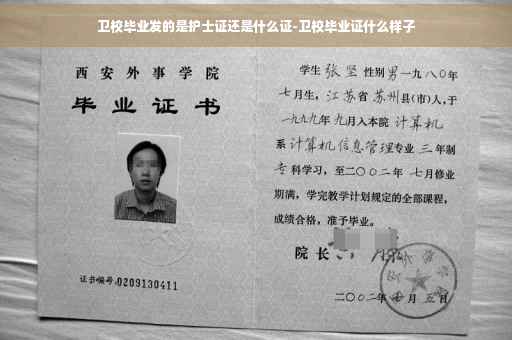 卫校毕业发的是护士证还是什么证-卫校毕业证什么样子
西安外事学院
毕业证书
证书编号:0209130411
学生 张坚 性别 男 一九八〇年
七月生, 江苏省 苏州县(市)人,于
一九九九年 九月入本院 计算机
系 计算机信息管理专业 三 年制
专科学习,至二〇〇二年 七月修业
期满,学完教学计划规定的全部课程,
成绩合格,准予毕业。
院长
二〇〇二年 月 五日